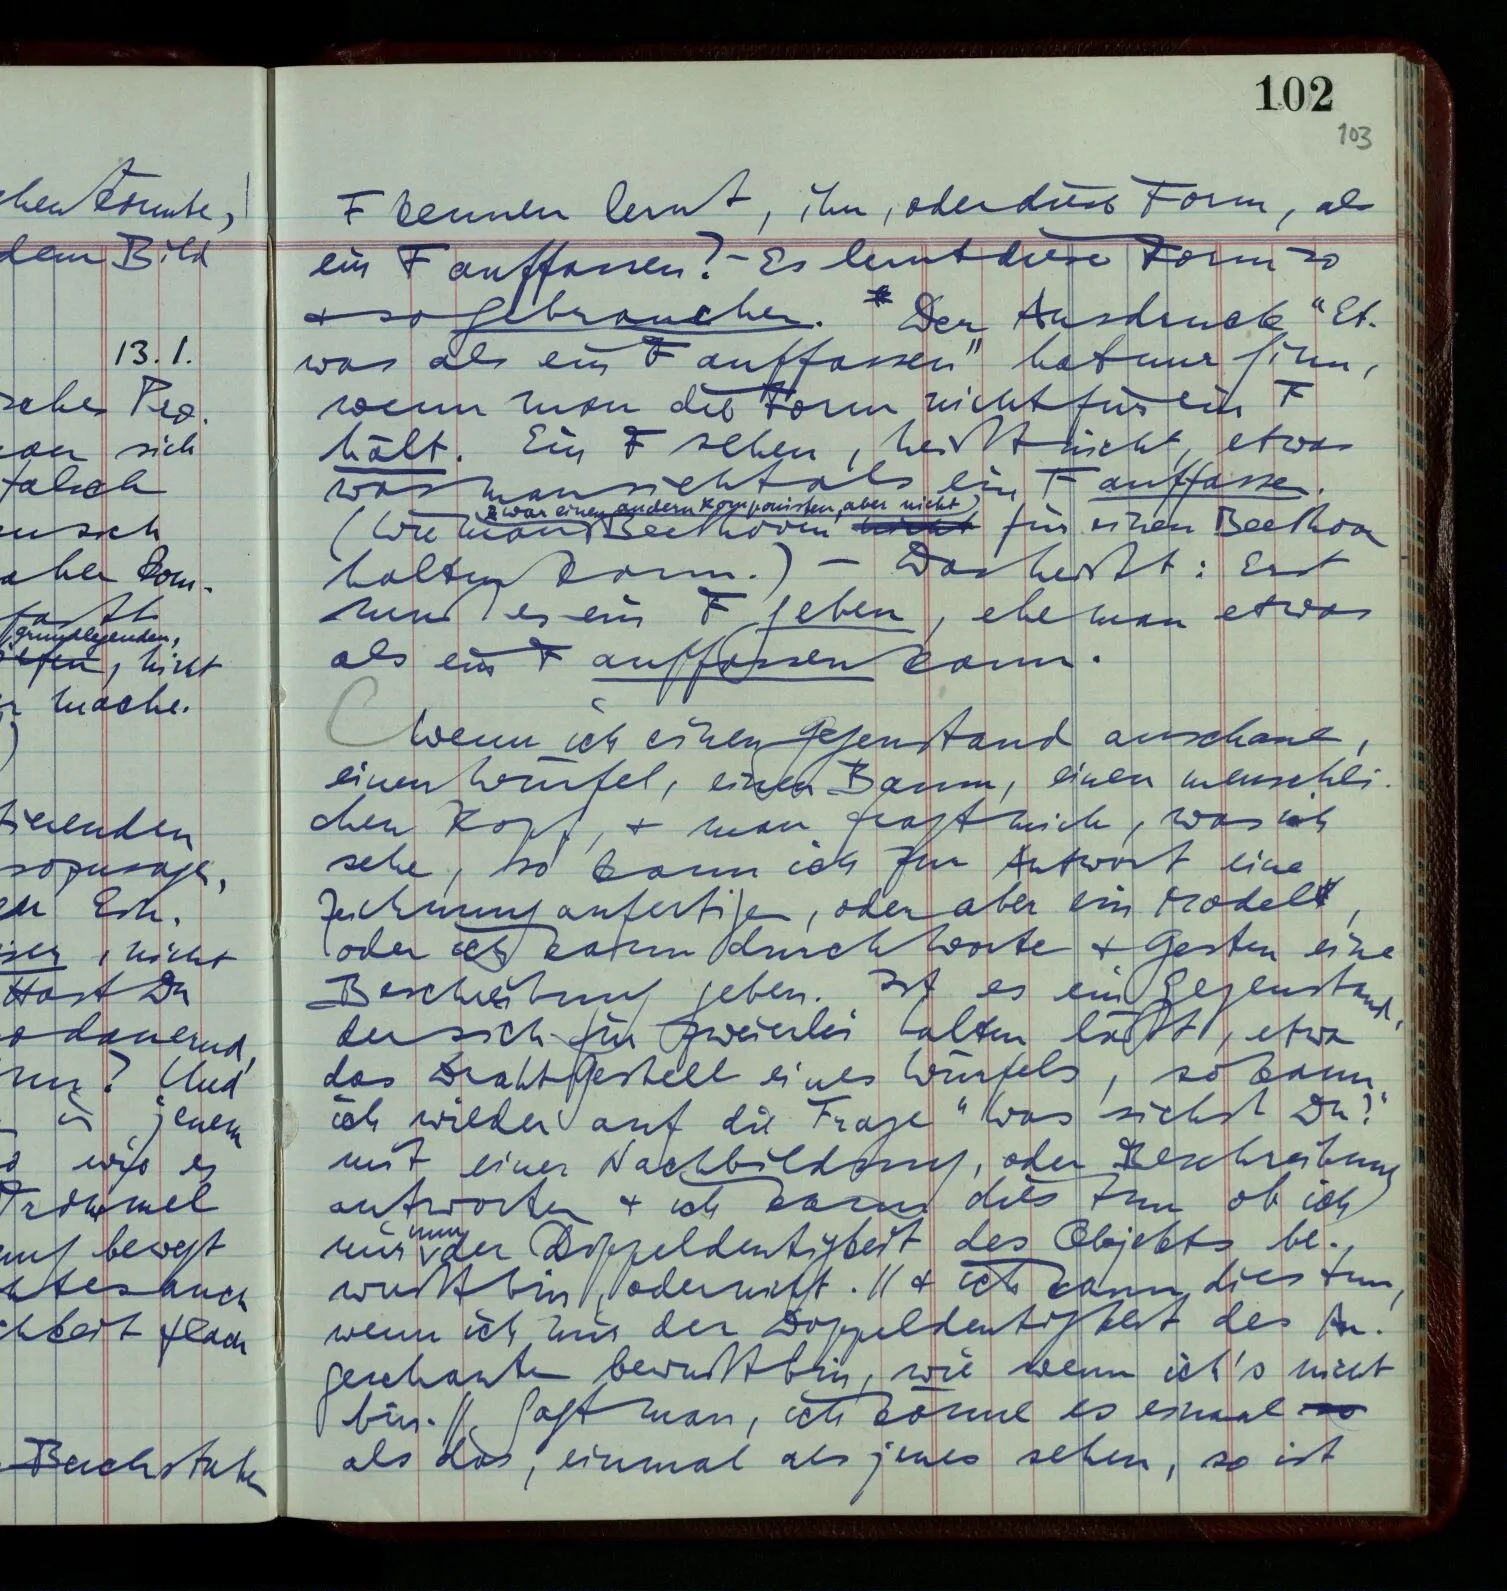 chen könnte,
dem Bild
13.1.
sches Pro-
man sich
falsch
ensch
aber kom-
grundlegenden,
tiefen, nicht
r mache.
)
tierenden
sozusagen,
en Erk.
isen, nicht
Hast Du
so dauernd,
nn? Und
jenem
wie es
Trommel
ung bewegt
auch
chkeit flach
Buchstaben
102
103
F kennen lernt, ihn, oder diese Form, als
ein F auffassen? – Es lernt diese Form so
& so gebrauchen. * Der Ausdruck “Et-
was als ein F auffassen” hat nur Sinn,
wenn man die Form nicht für ein F
hält. Ein F sehen, heißt nicht, etwas
was man sieht als ein F auffassen.
zwar einen andern Komponisten, aber nicht
(Wie man Beethoven nicht für einen Beethoven
halten kann.) – Das heißt: Erst
muß es ein F geben, ehe man etwas
als ein F auffassen kann.
Wenn ich einen Gegenstand anschaue,
einen Würfel, einen Baum, einen menschli-
chen Kopf, & man fragt mich, was ich
sehe, so kann ich zur Antwort eine
Zeichnung anfertigen, oder aber ein Modell,
oder ich kann durch Worte & Gesten eine
Beschreibung geben. Ist es ein Gegenstand,
der sich für zweierlei halten läßt, etwa
das Drahtgestell eines Würfels, so kann
ich wieder auf die Frage “Was siehst Du?”
mit einer Nachbildung, oder Beschreibung
antworten & ich kann dies tun ob ich
nun
mir der Doppeldeutigkeit des Objekts be-
wußt bin, oder nicht. // & ich kann dies tun,
wenn ich mir der Doppeldeutigkeit des An-
geschauten bewußt bin, wie wenn ich's nicht
bin. // Sagt man, ich könne es einmal so
als das, einmal als jenes sehen, so ist